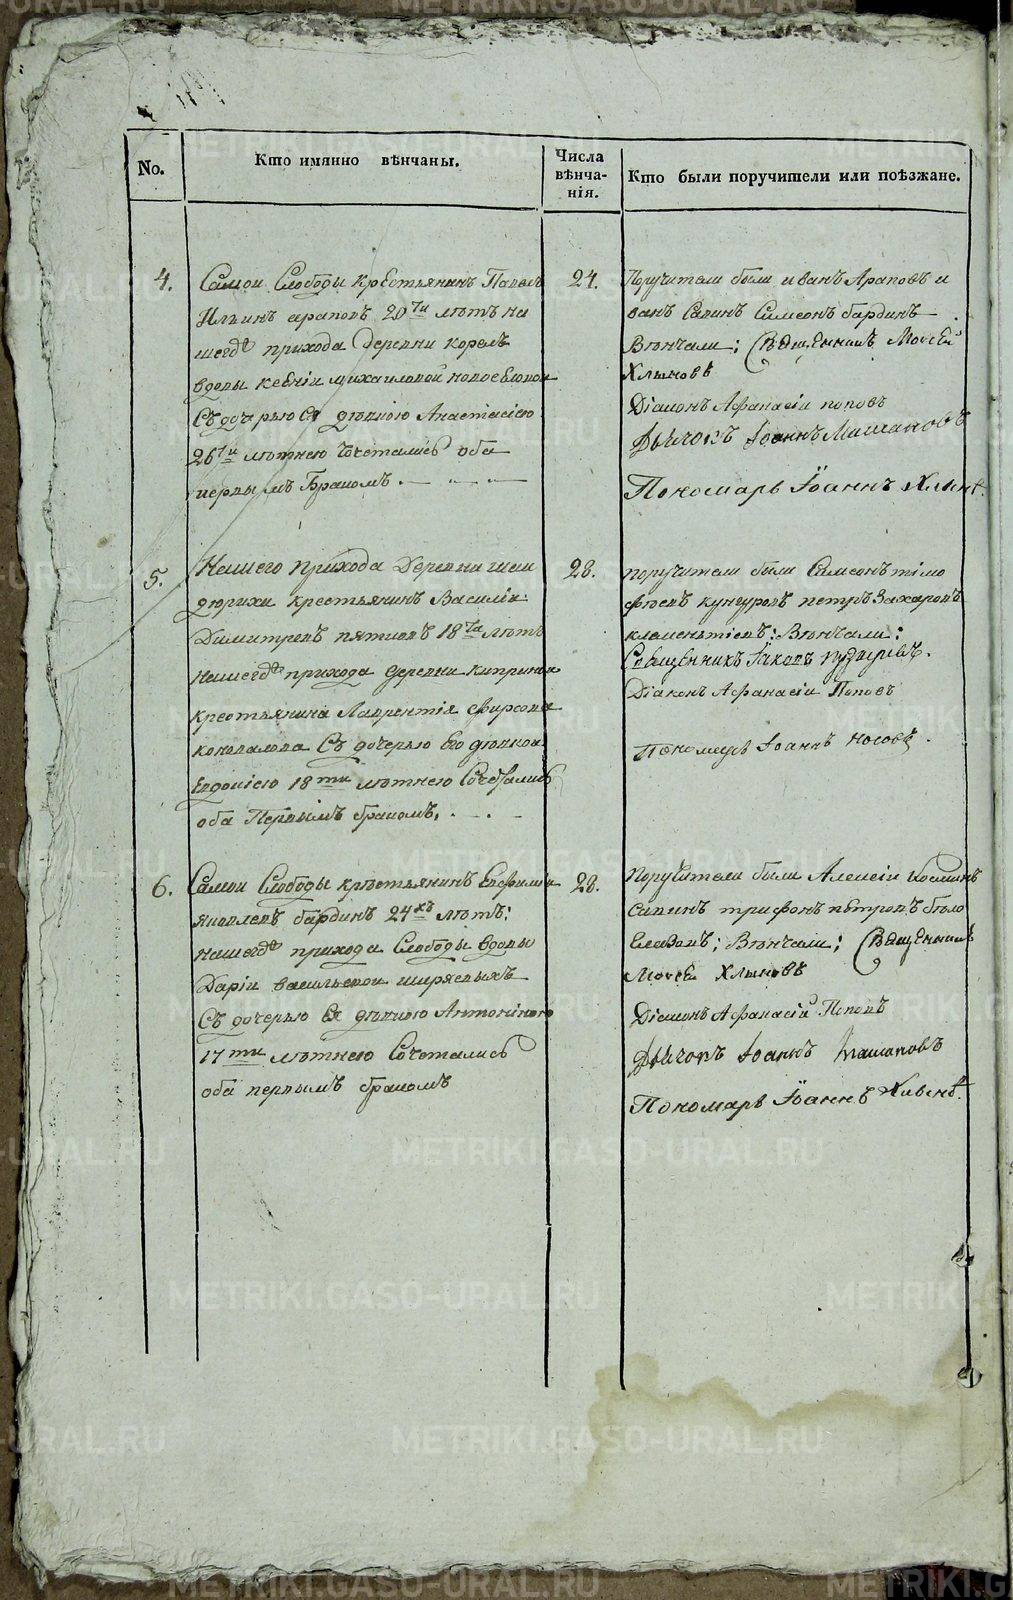 No.
Кто имянно вѣнчаны.
Числа
вѣнча-
нія.
Кто были поручители или поѣзжане.
4.
Самои Слободы крестьянинъ Павелъ
Ильинъ араповъ 20ти лѣтъ на
шегѡ прихода Деревни
вдовы ксеніи михаиловой
Съ дочерью Ея дѣвкою Анастасіею
26ти лѣтнею Сочетались оба
первымъ Бракомъ.
24.
Поручители были иванъ Араповъ и
ванъ Савинъ Симеонъ бардинъ
Вѣнчали; Священникъ Моѵсей
Хлыновъ
Діаконъ Афанасіи поповъ
Дьячокъ Іоаннъ
Пономарь Іоаннъ
5.
Нашего прихода Деревни
крестьянинъ Василіи
Димитревъ пятковъ 18ти лѣтъ
нашегѡ прихода деревни
крестьянина Лаврентія фирсова
коновалова Съ дочерью Его дѣвкою
Евдокіею 18ти лѣтнею Сочетались
оба Первымъ бракомъ.
28.
поручители были Симеонъ тимо
фѣевъ кунгуровъ петръ Захаровъ
клементіевъ: Вѣнчали:
Священникъ Іаковъ
Діаконъ Афанасіи Поповъ
Пономарь Іоаннъ Носовъ.
6.
Самои Слободы крѣстьянинъ Евфимии
яковлевъ бардинъ 24хъ лѣтъ;
нашегѡ прихода Слободы вдовы
Даріи васильевои ширяевыхъ
Съ дочерью Ея дѣвкою Антониною
17ти лѣтнею Сочетались
оба первымъ бракомъ
28.
Поручители были Алексіи
савинъ трифонъ петровъ бѣло
Глазовъ; Вѣнчали; Священникъ
Моѵсей Хлыновъ
Діаконъ Афанасіи Поповъ
Дьячокъ Іоаннъ
Пономарь Іоаннъ
METRIKI.GASO-URAL.RU